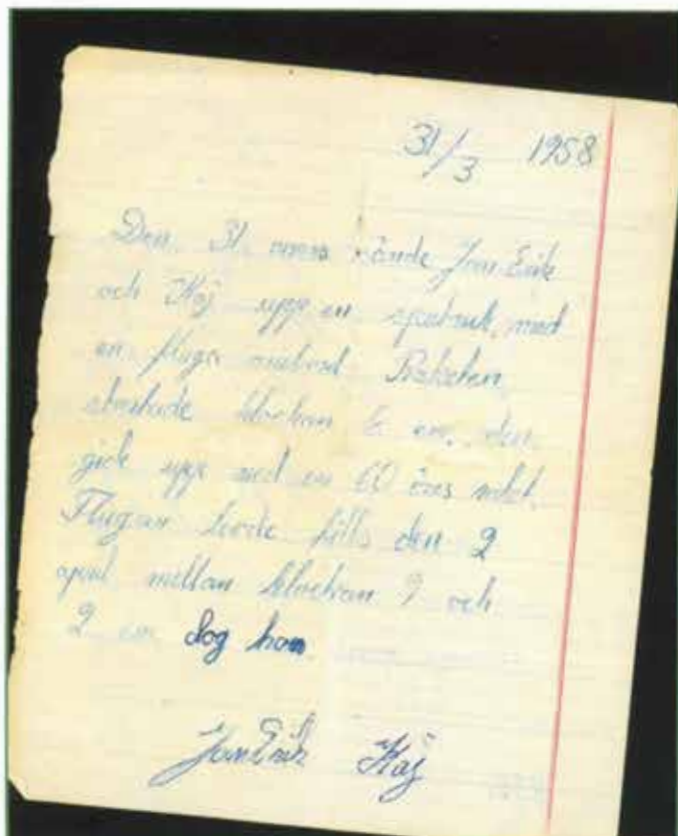 31/3 1958
Den 31 mars sände Jan Erik
och Kaj upp en sputnik, med
en fluga ombord Raketen
startade klockan 6 em. den
gick upp med en 60 öres raket.
Flugan levde tills den 2
april mellan klockan 9 och
2 em dog hon
Jan Erik Kaj